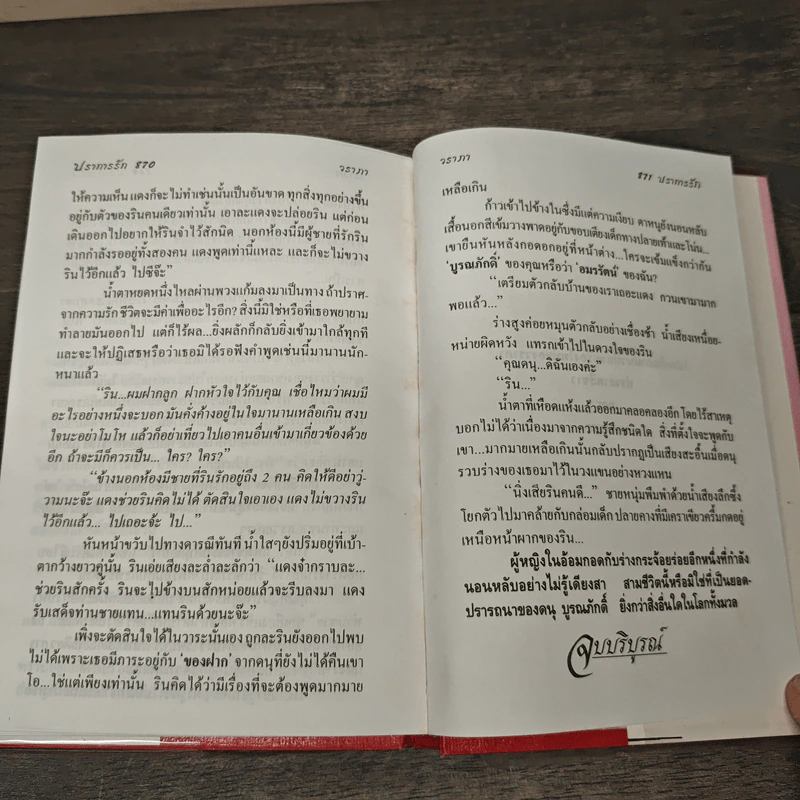 ปราการรัก 870
วราภา
ให้ความเห็น แดงก็จะไม่ทำเช่นนั้นเป็นอันขาด ทุกสิ่งทุกอย่างขึ้น
อยู่กับตัวของรินคนเดียวเท่านั้น เอาละแดงจะปล่อยริน แต่ก่อน
เดินออกไปอยากให้รินจำไว้สักนิด นอกห้องนี้มีผู้ชายที่รักริน
มากกำลังรออยู่ทั้งสองคน แดงพูดเท่านี้แหละ และก็จะไม่ขวาง
รินไว้อีกแล้ว ไปซีจ๊ะ”
น้ำตาหยดหนึ่งไหลผ่านพวงแก้มลงมาเป็นทาง ถ้าปราศ-
จากความรัก ชีวิตจะมีค่าเพื่ออะไรอีก? สิ่งนี้มิใช่หรือที่เธอพยายาม
ทำลายมันออกไป แต่ก็ไร้ผล...ยิ่งผลักก็กลับยิ่งเข้ามาใกล้ทุกที
และจะให้ปฏิเสธหรือว่าเธอมิได้รอฟังคำพูดเช่นนี้มานานนัก-
หนาแล้ว
“ริน...ผมฝากลูก ฝากหัวใจไว้กับคุณ เชื่อไหมว่าผมมี
อะไรอย่างหนึ่งจะบอก มันคั่งค้างอยู่ในใจมานานเหลือเกิน สงบ
ใจนะอย่าโมโห แล้วก็อย่าเที่ยวไปเอาคนอื่นเข้ามาเกี่ยวข้องด้วย
อีก ถ้าจะมีก็ควรเป็น... ใคร? ใคร?”
“ข้างนอกห้องมีชายที่รินรักอยู่ถึง 2 คน คิดให้ดีอย่าวู่-
วามนะจ๊ะ แดงช่วยรินคิดไม่ได้ ตัดสินใจเอาเอง แดงไม่ขวางริน
ไว้อีกแล้ว... ไปเถอะจ้ะ ไป...”
หันหน้าขวับไปทางดารณีทันที น้ำใสๆยังปริ่มอยู่ที่เบ้า-
ตากว้างยาวคู่นั้น รินเอ่ยเสียงละล่ำละลักว่า “แดงจ๋ากราบละ...
ช่วยรินสักครั้ง รินจะไปข้างบนสักหน่อยแล้วจะรีบลงมา แดง
รับเสด็จท่านชายแทน...แทนรินด้วยนะจ๊ะ”
เพิ่งจะตัดสินใจได้ในวาระนั้นเอง ถูกละรินยังออกไปพบ
ไม่ได้เพราะเธอมีภาระอยู่กับ ‘ของฝาก’ จากดนุที่ยังไม่ได้คืนเขา
โอ...ใช่แต่เพียงเท่านั้น รินคิดได้ว่ามีเรื่องที่จะต้องพูดมากมาย
วราภา
871 ปราการรัก
เหลือเกิน
ก้าวเข้าไปข้างในซึ่งมีแต่ความเงียบ ตาหนุยังนอนหลับ
เสื้อนอกสีเข้มวางพาดอยู่กับขอบเตียงเด็กทางปลายเท้าและโน่น...
เขายืนหันหลังกอดอกอยู่ที่หน้าต่าง...ใครจะเข้มแข็งกว่ากัน
‘บูรณภักดิ์’ ของคุณหรือว่า ‘อมรรัตน์’ ของฉัน?
“เตรียมตัวกลับบ้านของเราเถอะแดง กวนเขามามาก
พอแล้ว...”
ร่างสูงค่อยหมุนตัวกลับอย่างเชื่องช้า น้ำเสียงเหนื่อย-
หน่ายผิดหวัง แทรกเข้าไปในดวงใจของริน
“คุณดนุ...ดิฉันเองค่ะ”
“ริน...”
น้ำตาที่เหือดแห้งแล้วออกมาคลอคลองอีก โดยไร้สาเหตุ
บอกไม่ได้ว่าเนื่องมาจากความรู้สึกชนิดใด สิ่งที่ตั้งใจจะพูดกับ
เขา...มากมายเหลือเกินนั้นกลับปรากฏเป็นเสียงสะอื้นเมื่อดนุ
รวบร่างของเธอมาไว้ในวงแขนอย่างหวงแหน
“นิ่งเสียรินคนดี...” ชายหนุ่มพึมพำด้วยน้ำเสียงลึกซึ้ง
โยกตัวไปมาคล้ายกับกล่อมเด็ก ปลายคางที่มีเคราเขียวครึ้มกดอยู่
เหนือหน้าผากของริน...
ผู้หญิงในอ้อมกอดกับร่างกระจ้อยร่อยอีกหนึ่งที่กำลัง
นอนหลับอย่างไม่รู้เดียงสา สามชีวิตนี้หรือมิใช่ที่เป็นยอด-
ปรารถนาของดนุ บูรณภักดิ์ ยิ่งกว่าสิ่งอื่นใดในโลกทั้งมวล
จบบริบูรณ์